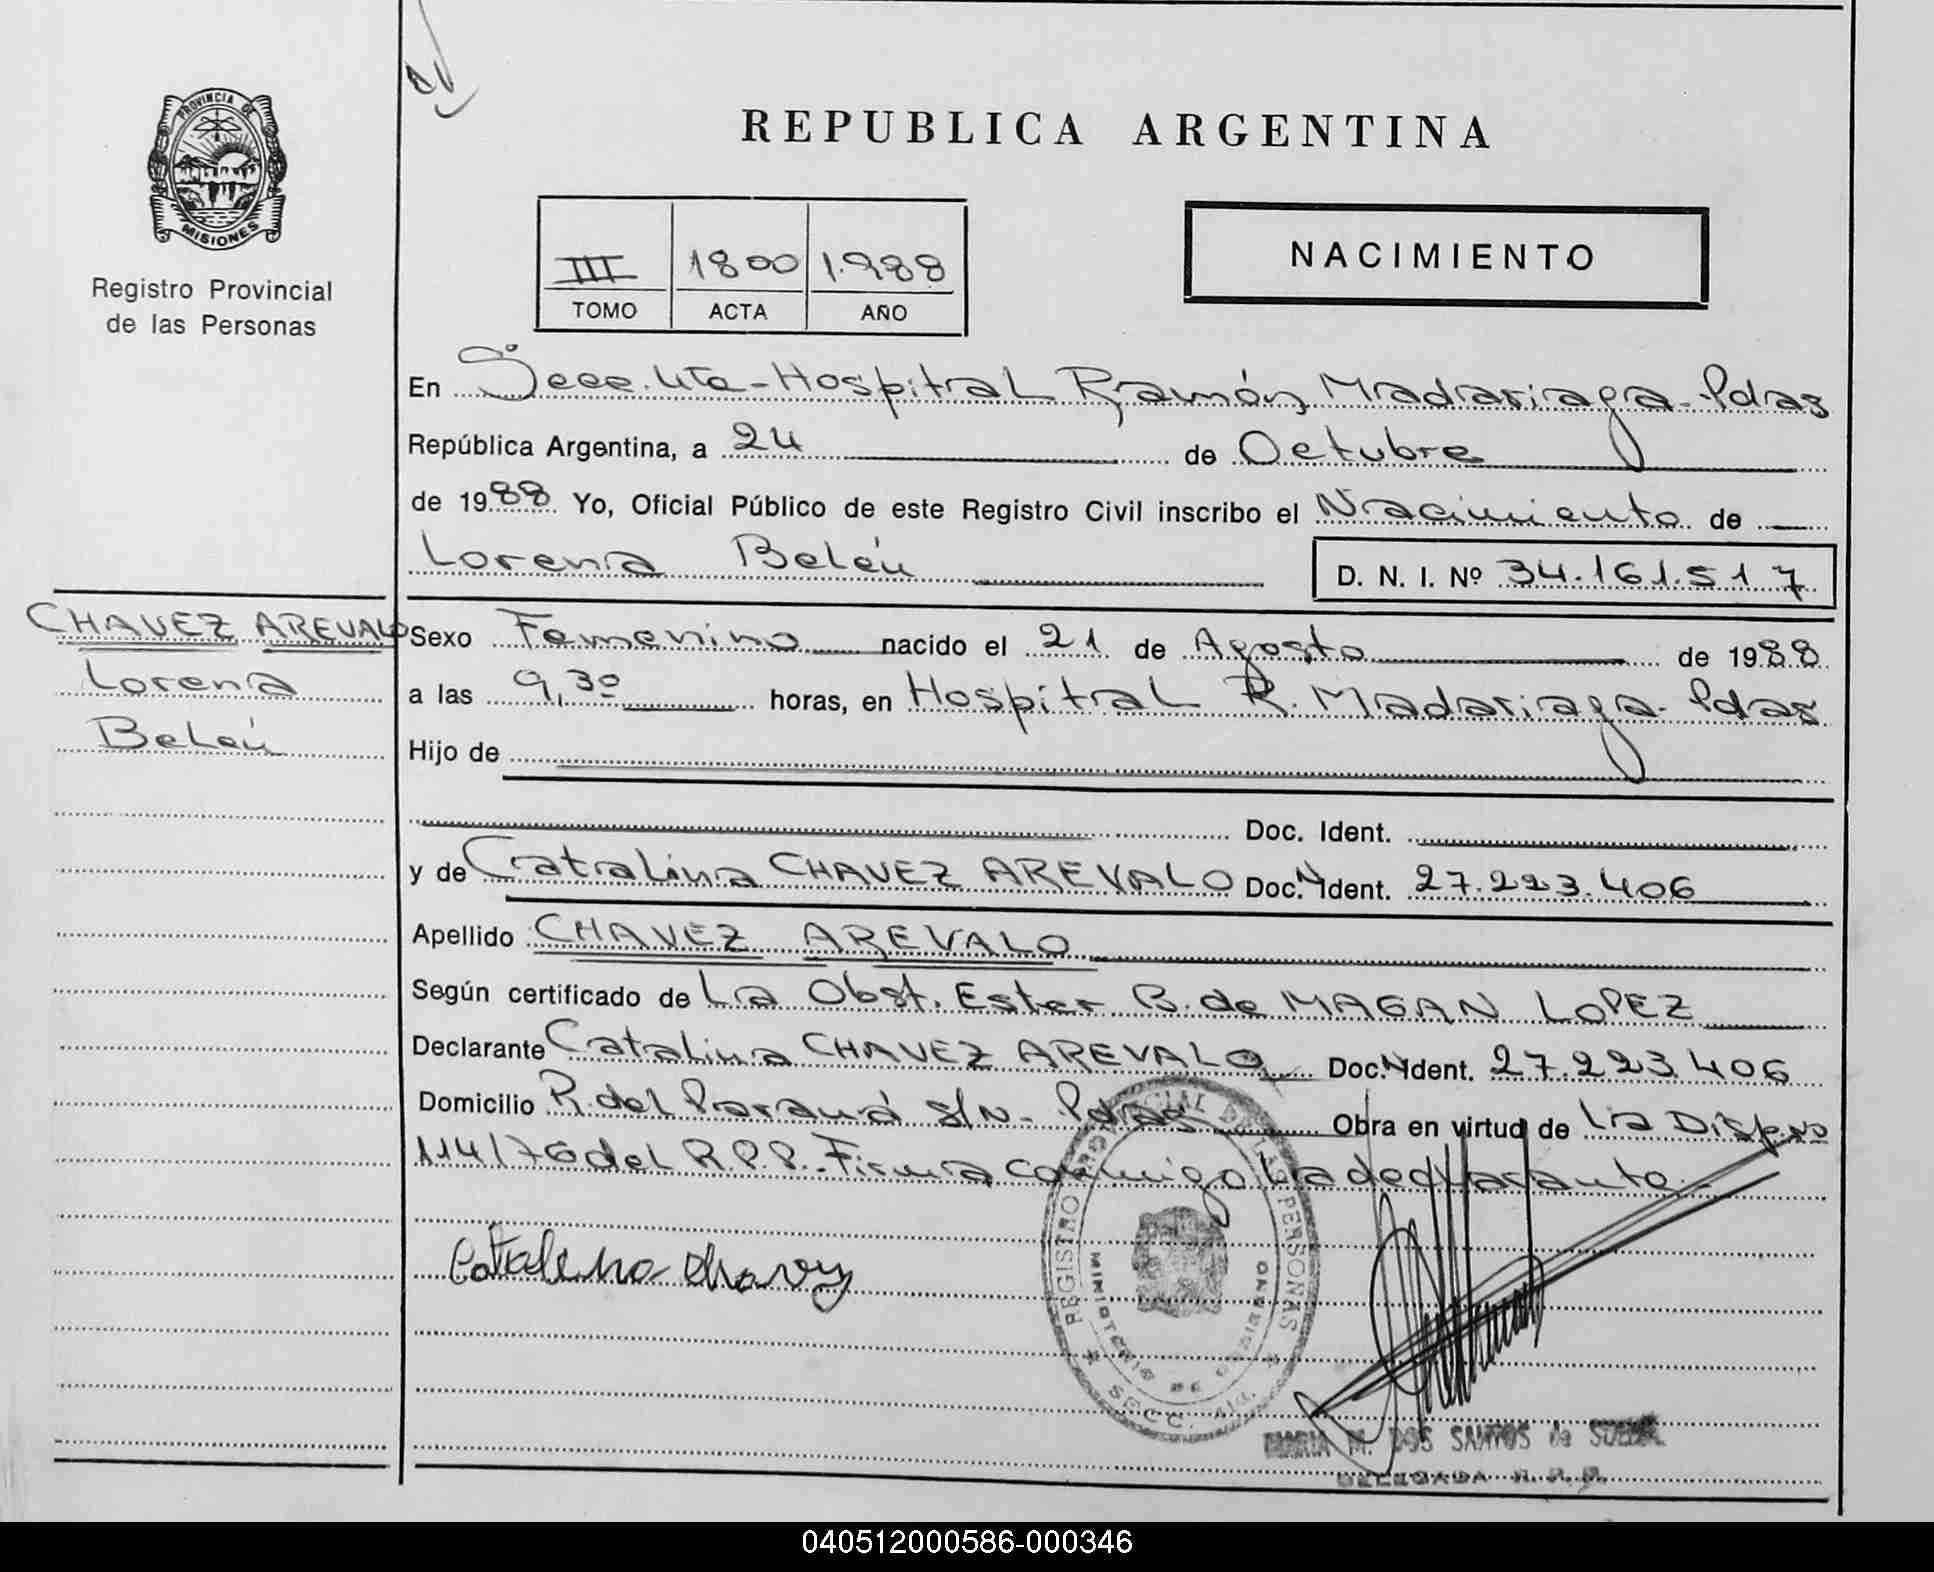 PROVINCIA DE
MISIONES
Registro Provincial
de las Personas
REPUBLICA ARGENTINA
III 1800 1.988
TOMO ACTA AÑO
NACIMIENTO
En Secc. 4ta - Hospital Ramón Madariaga - Pdas
República Argentina, a 24 de Octubre
de 1988 Yo, Oficial Público de este Registro Civil inscribo el Nacimiento de
Lorena Belén
D. N. I. Nº 34.161.517
CHAVEZ AREVALO
Lorena
Belén
Sexo Femenino nacido el 21 de Agosto de 1988
a las 9,30 horas, en Hospital R. Madariaga - Pdas
Hijo de
Doc. Ident.
y de Catalina CHAVEZ AREVALO Doc. Ident. 27.223.406
Apellido CHAVEZ AREVALO
Según certificado de La Obst. Ester B. de MAGAN LOPEZ
Declarante Catalina CHAVEZ AREVALO Doc. Ident. 27.223.406
Domicilio R. del Paraná s/n - Pdas Obra en virtud de La Disp. Nº
114/76 del R.P.P. - Firma conmigo la declarante.
Catalina Chavez
REGISTRO PROVINCIAL DE LAS PERSONAS
MINISTERIO DE GOBIERNO
SECC. 4ta.
MARIA M. DOS SANTOS de
DELEGADA R. P. P.
040512000586-000346